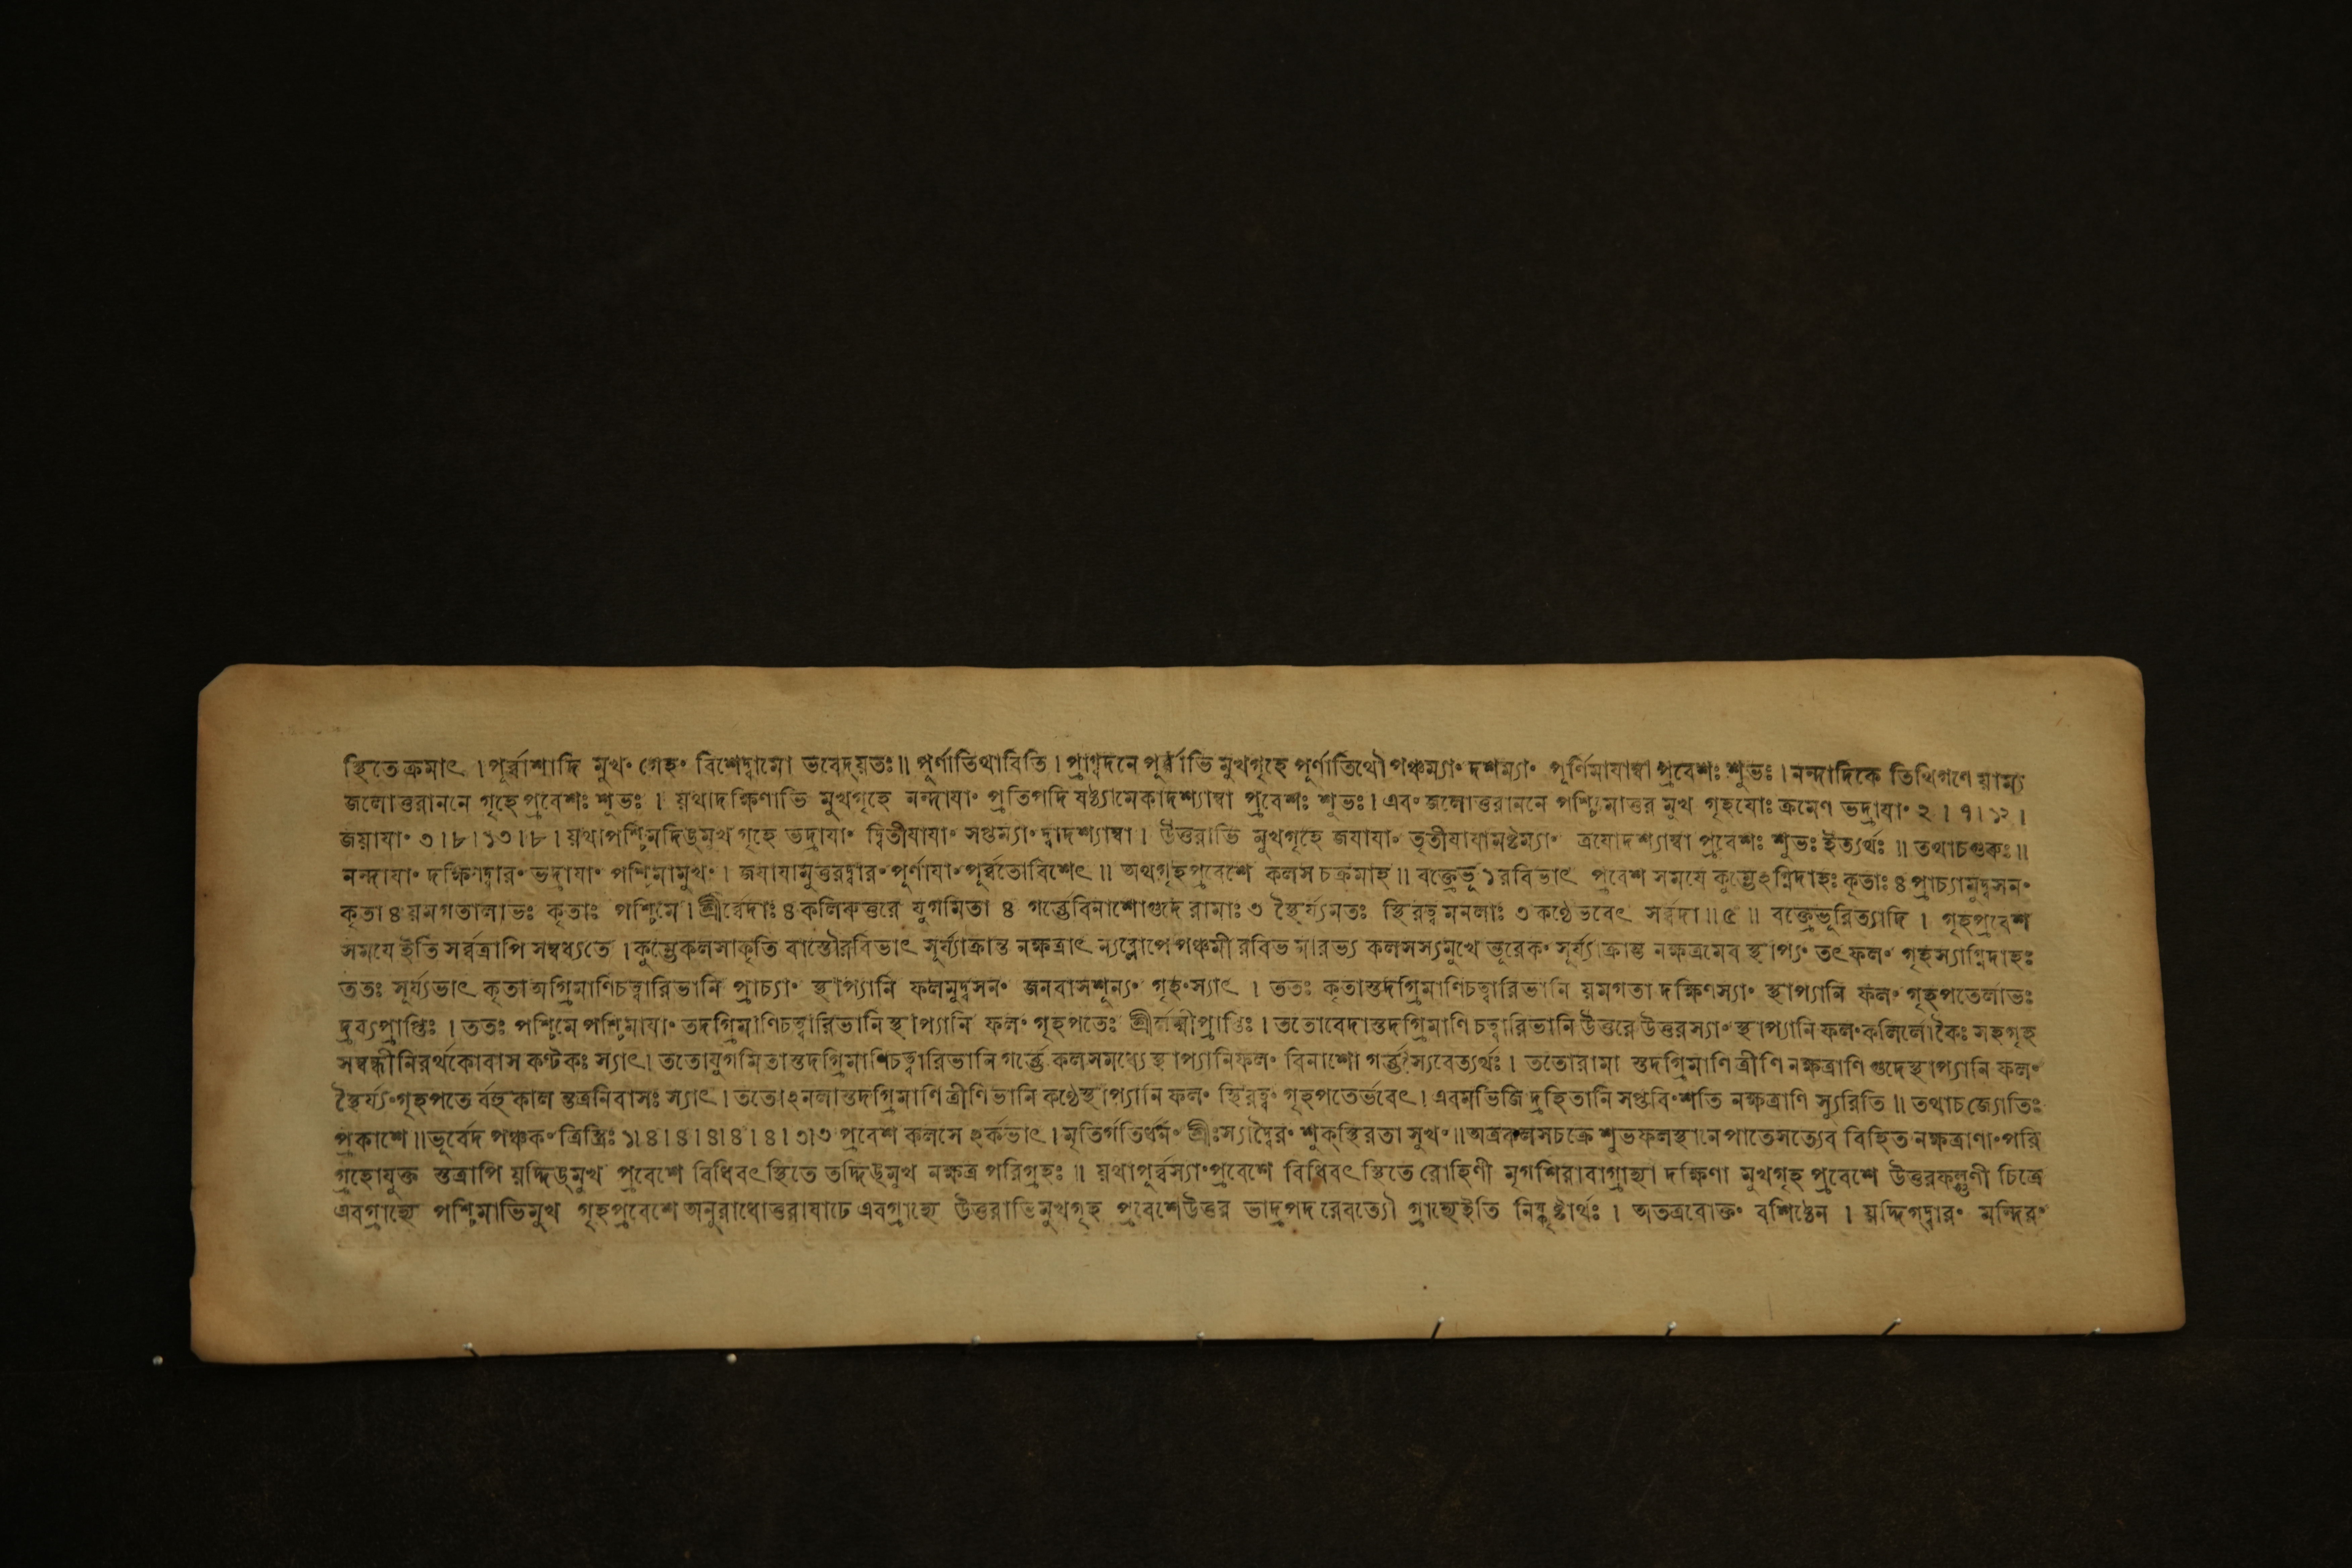 স্থিতে ক্রমাৎ । পূর্ব্বাশাদি মুখং গেহং বিশেদ্বামো ভবেদ্যতঃ ॥ পূর্ণাতিথাবিতি । প্রাগ্বদনে পূর্ব্বাভি মুখগৃহে পূর্ণাতিথৌ পঞ্চম্যাং দশম্যাং পূর্ণিমাযাম্বা প্রবেশঃ শুভঃ । নন্দাদিকে তিথিগণে য়াম্য
জলোত্তরাননে গৃহে প্রবেশঃ শুভঃ । য়থাদক্ষিণাভি মুখগৃহে নন্দাযাং প্রতিপদি ষষ্ঠ্যামেকাদশ্যাম্বা প্রবেশঃ শুভঃ । এবং জলোত্তরাননে পশ্চিমোত্তর মুখ গৃহযোঃ ক্রমেণ ভদ্রাযাং ২ । ৭ । ১২ ।
জয়াযাং ৩ । ৮ । ১৩ । ৮ । য়থাপশ্চিমদিঙ্মুখ গৃহে ভদ্রাযাং দ্বিতীযাযাং সপ্তম্যাং দ্বাদশ্যাম্বা । উত্তরাভি মুখগৃহে জযাযাং তৃতীযাযামষ্টম্যাং ত্রযোদশ্যাম্বা প্রবেশঃ শুভঃ ইত্যর্থঃ ॥ তথাচগুরুঃ ॥
নন্দাযাং দক্ষিণদ্বারং ভদ্রাযাং পশ্চিমামুখং । জযাযামুত্তরদ্বারং পূর্ণাযাং পূর্ব্বতোবিশেৎ ॥ অথগৃহপ্রবেশে কলস চক্রমাহ ॥ বক্ত্রেভূ ১ রবিভাৎ প্রবেশ সমযে কুম্ভেঽগ্নিদাহঃ কৃতাঃ ৪ প্রাচ্যামুদ্বসনং
কৃতা ৪ য়মগতালাভঃ কৃতাঃ পশ্চিমে । শ্রীর্বেদাঃ ৪ কলিরুত্তরে যুগমিতা ৪ গর্ভেবিনাশোগুদে রামাঃ ৩ স্থৈর্য্যমতঃ স্থিরত্ব মনলাঃ ৩ কণ্ঠেভবেৎ সর্ব্বদা ॥ ৫ ॥ বক্ত্রেভূরিত্যাদি । গৃহপ্রবেশ
সমযে ইতি সর্ব্বত্রাপি সম্বধ্যতে । কুম্ভেকলসাকৃতি বাস্তৌরবিভাৎ সূর্য্যাক্রান্ত নক্ষত্রাৎ ন্যব্লোপে পঞ্চমী রবিভ মারভ্য কলসস্যমুখে ভূরেকং সূর্য্যাক্রান্ত নক্ষত্রমেব স্থাপ্যং তৎ ফলং গৃহস্যাগ্নিদাহঃ
ততঃ সূর্য্যভাৎ কৃতা অগ্রিমাণিচত্বারিভানি প্রাচ্যাং স্থাপ্যানি ফলমুদ্বসনং জনবাসশূন্যং গৃহং স্যাৎ । ততঃ কৃতাস্তদগ্রিমাণিচত্বারিভানি য়মগতা দক্ষিণস্যাং স্থাপ্যানি ফলং গৃহপতের্লাভঃ
দ্রব্যপ্রাপ্তিঃ । ততঃ পশ্চিমে পশ্চিমাযাং তদগ্রিমাণিচত্বারিভানি স্থাপ্যানি ফলং গৃহপতেঃ শ্রীর্লক্ষ্মীপ্রাপ্তিঃ । ততোবেদাস্তদগ্রিমাণি চত্বারিভানি উত্তরে উত্তরস্যাং স্থাপ্যানি ফলং কলির্লোকৈঃ সহগৃহ
সম্বন্ধীনিরর্থকোবাস কণ্টকঃ স্যাৎ । ততোযুগমিতাস্তদগ্রিমাণিচত্বারিভানি গর্ভে কলসমধ্যে স্থাপ্যানিফলং বিনাশো গর্ভস্যবেত্যর্থঃ । ততোরামা স্তদগ্রিমাণি ত্রীণি নক্ষত্রাণি গুদেস্থাপ্যানি ফলং
স্থৈর্য্যং গৃহপতে র্বহুকাল ন্তত্রনিবাসঃ স্যাৎ । ততোঽনলাস্তদগ্রিমাণি ত্রীণিভানি কণ্ঠেস্থাপ্যানি ফলং স্থিরত্বং গৃহপতের্ভবেৎ । এবমভিজি দ্রহিতানি সপ্তবিংশতি নক্ষত্রাণি স্যুরিতি ॥ তথাচ জ্যোতিঃ
প্রকাশে ॥ ভূর্বেদ পঞ্চকং ত্রিস্ত্রিঃ ১ । ৪ । ৪ । ৪ । ৪ । ৪ । ৩ । ৩ প্রবেশ কলসে ঽর্কভাৎ । মৃতির্গতির্ধনং শ্রীঃস্যাদ্বৈরং শুকস্থিরতা সুখং ॥ অত্রকলসচক্রে শুভফলস্থানে পাতেসত্যেব বিহিত নক্ষত্রাণাং পরি
গ্রহোযুক্ত স্তত্রাপি য়দ্দিঙ্মুখ প্রবেশে বিধিবৎ স্থিতে তদ্দিঙ্মুখ নক্ষত্র পরিগ্রহঃ ॥ য়থাপূর্ব্বস্যাং প্রবেশে বিধিবৎ স্থিতে রোহিণী মৃগশিরাবাগ্রাহ্যা দক্ষিণা মুখগৃহ প্রবেশে উত্তরফল্গুণী চিত্রে
এবগ্রাহ্যে পশ্চিমাভিমুখ গৃহপ্রবেশে অনুরাধোত্তরাষাঢে এবগ্রাহ্যে উত্তরাভিমুখগৃহ প্রবেশেউত্তর ভাদ্রপদ রেবত্যৌ গ্রাহ্যেইতি নিষ্কৃষ্টার্থঃ । অতত্রবোক্তং বশিষ্ঠেন । য়দ্দিগ্দ্বারং মন্দিরং